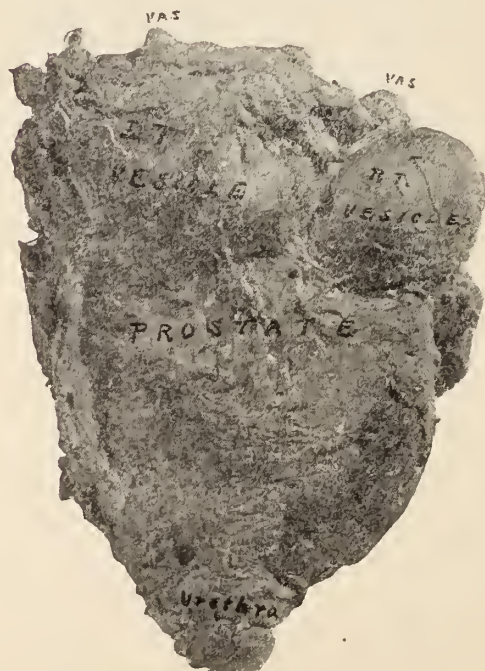 VAS
VAS
LT
VESICLE
RT
VESICLE
PROSTATE
Urethra